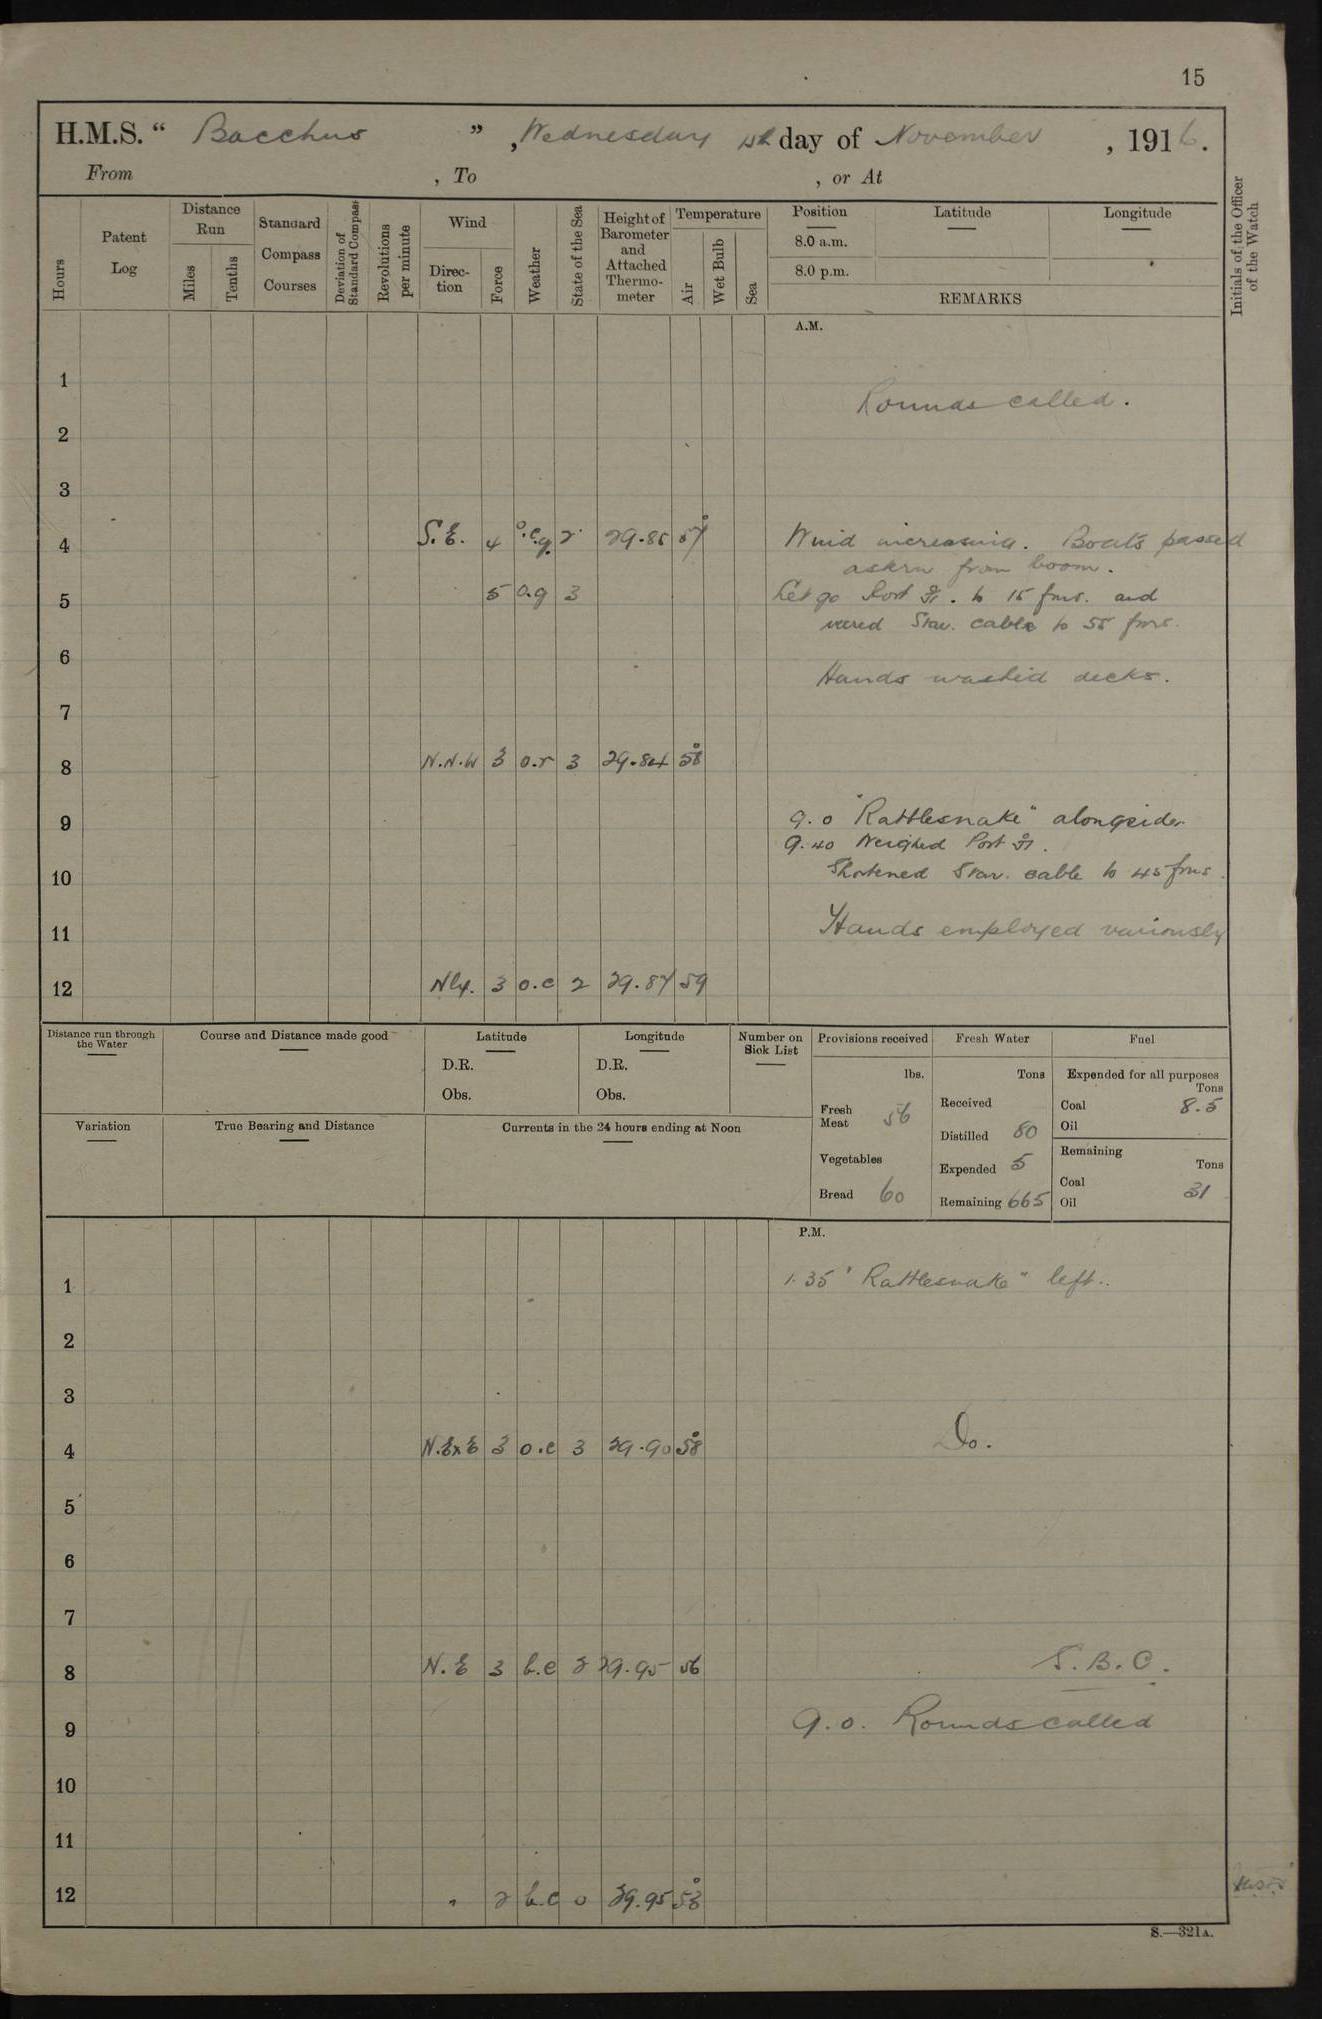 15
H.M.S. " Bacchus ", Wednesday 1st day of November, 1916.
From , To , or At
Hours
Patent Log
Distance Run
Miles
Tenths
Standard Compass Courses
Deviation of Standard Compass
Revolutions per minute
Wind
Direction
Force
Weather
State of the Sea
Height of Barometer and Attached Thermometer
Temperature
Air
Wet Bulb
Sea
Position
8.0 a.m.
8.0 p.m.
Latitude
Longitude
REMARKS
Initials of the Officer of the Watch
A.M.
1
Rounds called.
2
3
4 S.E. 4 o.c.q. 2 29.85 57° Wind increasing. Boats passed
astern from boom.
5 5 o.q 3 Let go Port . to 15 fms. and
veered Star. cable to 55 fms.
6
Hands washed decks.
7
8 N.N.W 3 o.r 3 29.84 58°
9 9.0 "Rattlesnake" alongside.
9.40 Weighed Port .
10 Shortened Star. cable to 45 fms.
11 Hands employed variously
12 Nly. 3 o.c 2 29.87 59
Distance run through the Water
Course and Distance made good
Latitude
D.R.
Obs.
Longitude
D.R.
Obs.
Number on Sick List
Provisions received
lbs.
Fresh Meat 56
Vegetables
Bread 60
Fresh Water
Tons
Received
Distilled 80
Expended 5
Remaining 665
Fuel
Expended for all purposes
Tons
Coal 8.5
Oil
Remaining
Tons
Coal 31
Oil
Variation
True Bearing and Distance
Currents in the 24 hours ending at Noon
P.M.
1 1.35 "Rattlesnake" left..
2
3
4 N.ExE 3 o.c 3 29.90 58° Do.
5
6
7
8 N.E 3 b.c 2 29.95 56 S.B.C.
9 9.0. Rounds called
10
11
12 " 2 b.c 0 29.95 53°
S.—321A.